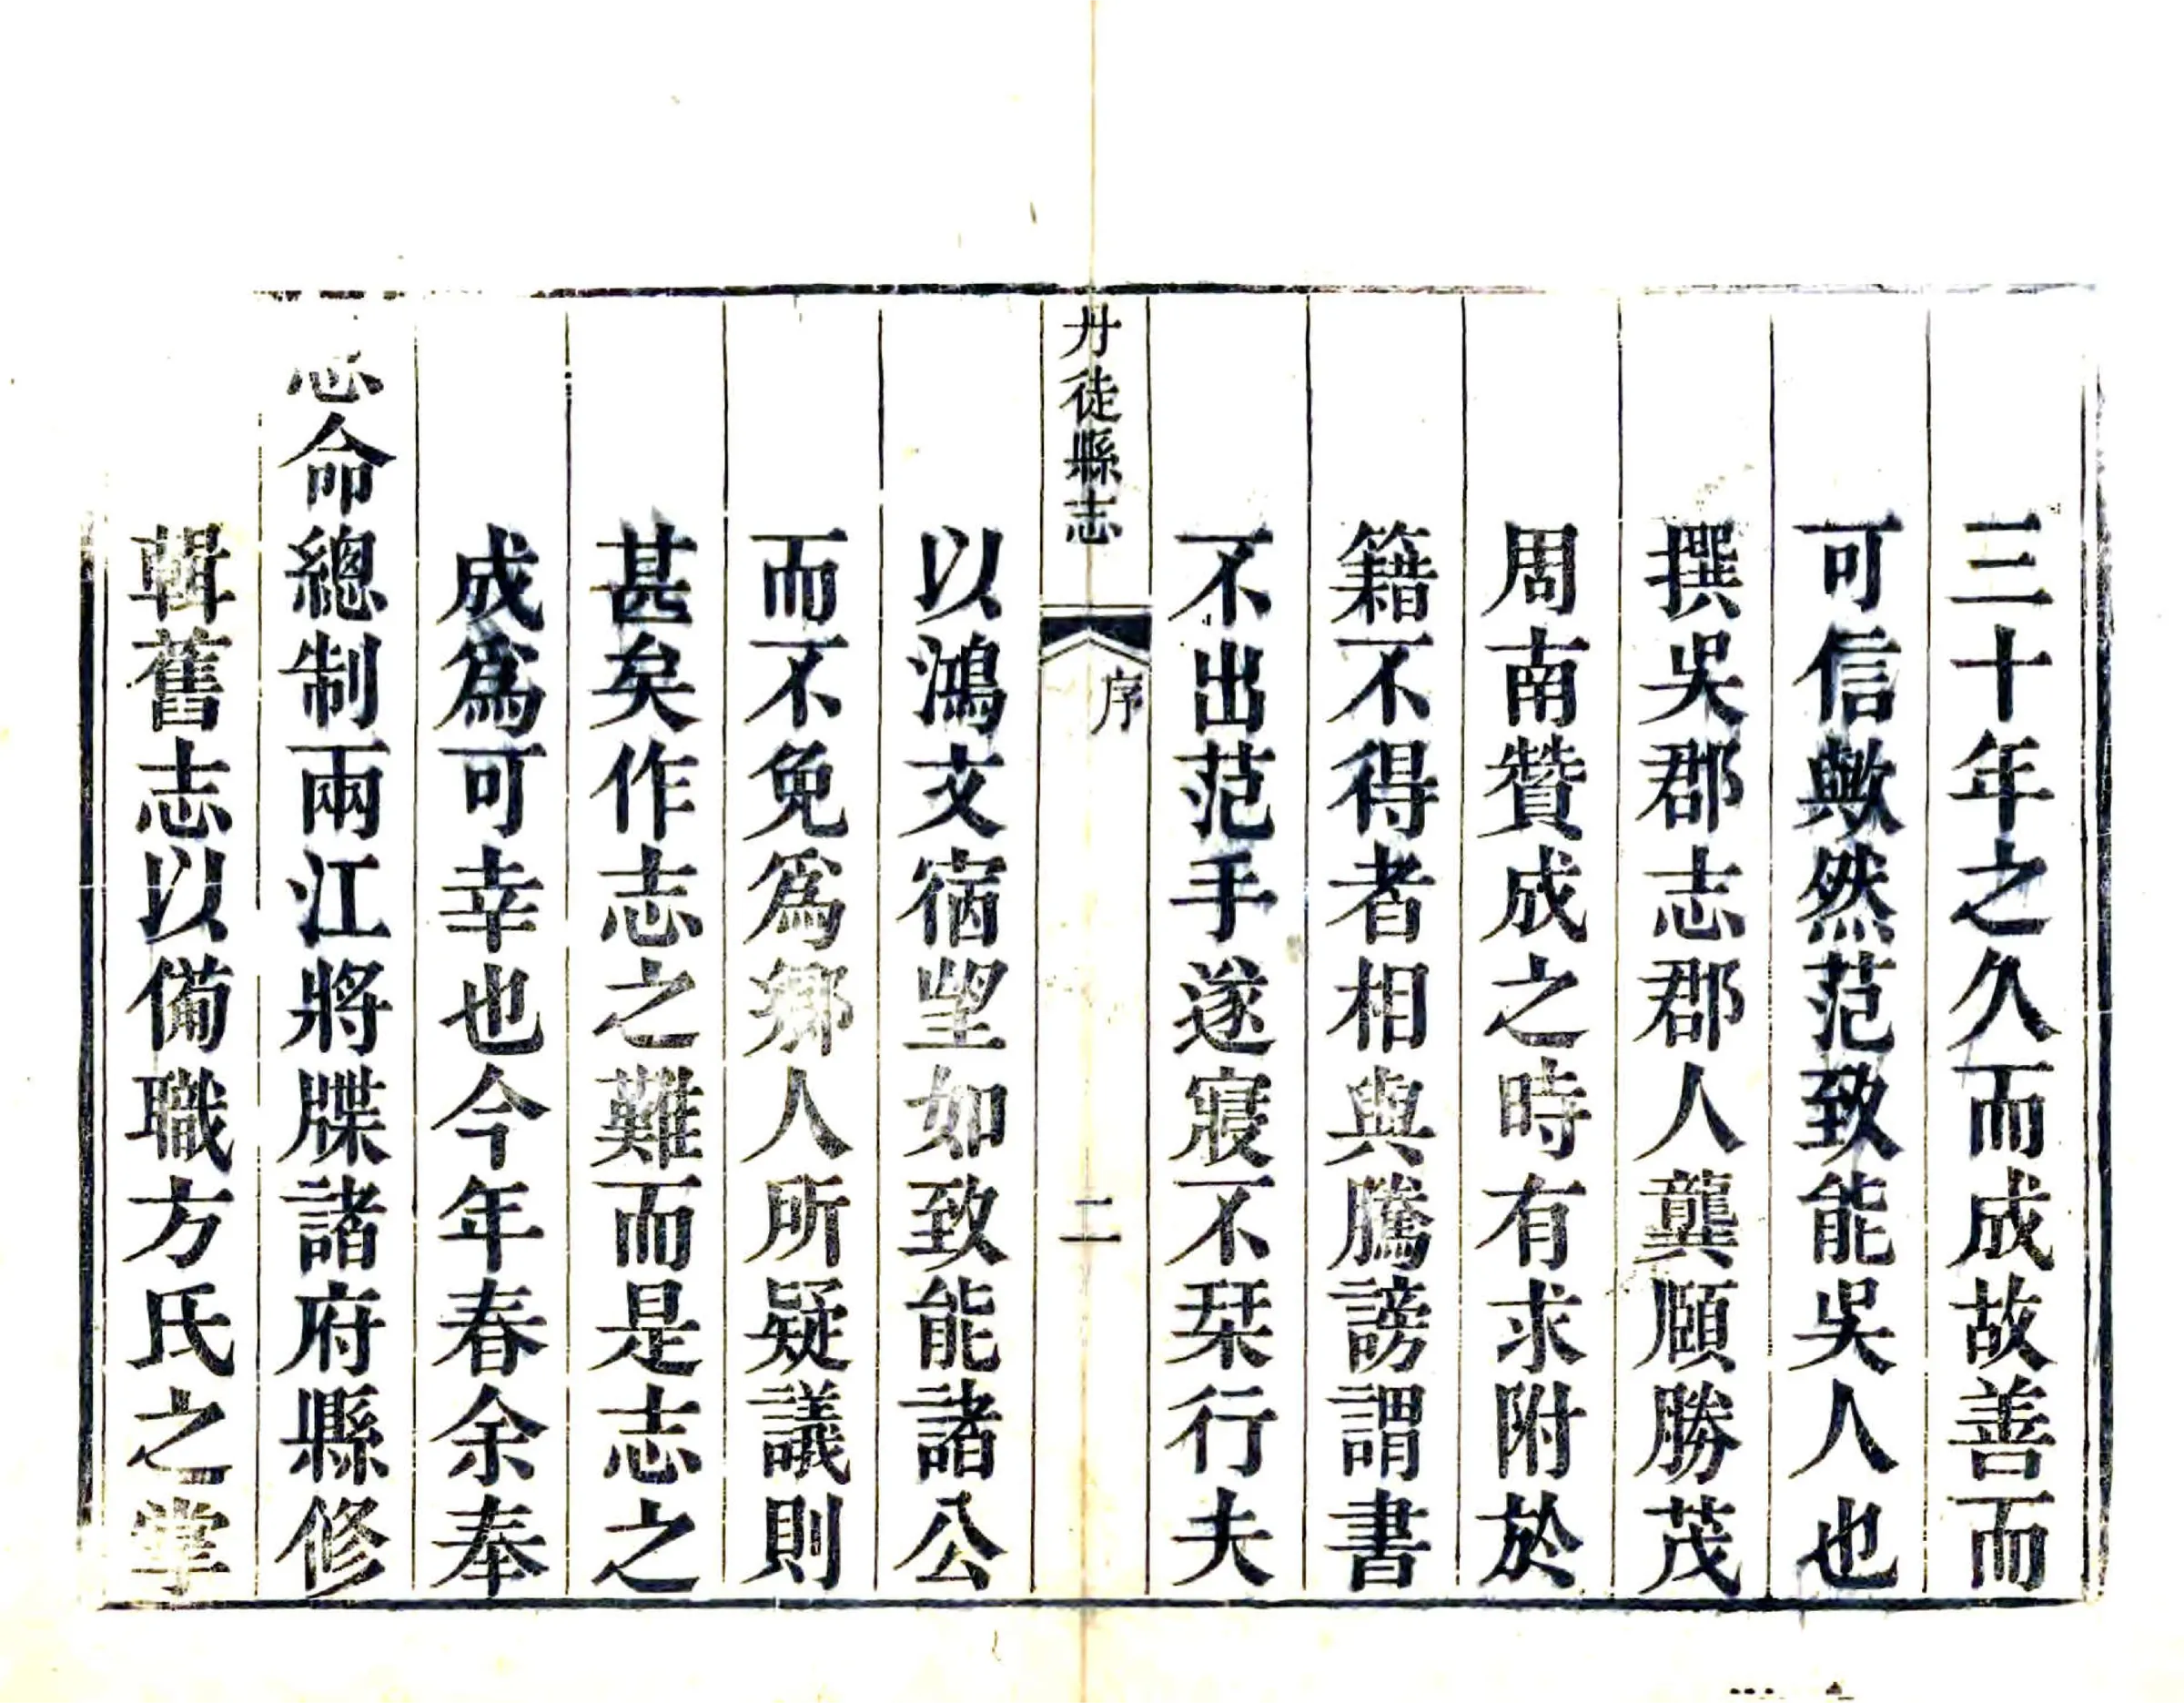 三十年之久而成故善而
可信歟然范致能吳人也
撰吳郡志郡人龔頤勝茂
周南贊成之時有求附於
籍不得者相與騰謗謂書
不出范手遂寢不栞行夫
丹徒縣志
序
二
以鴻文宿望如致能諸公
而不免爲鄉人所疑議則
甚矣作志之難而是志之
成爲可幸也今年春余奉
命總制兩江將牒諸府縣修
輯舊志以備職方氏之掌